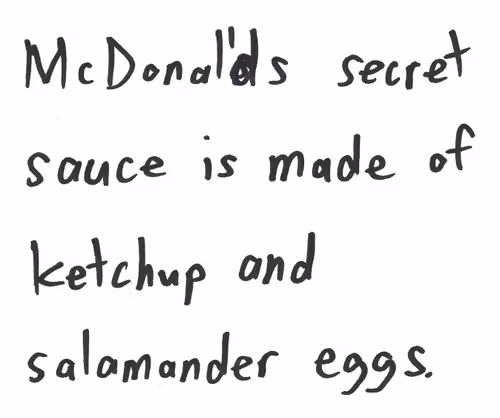 McDonal'ds secret
sauce is made of
ketchup and
salamander eggs.